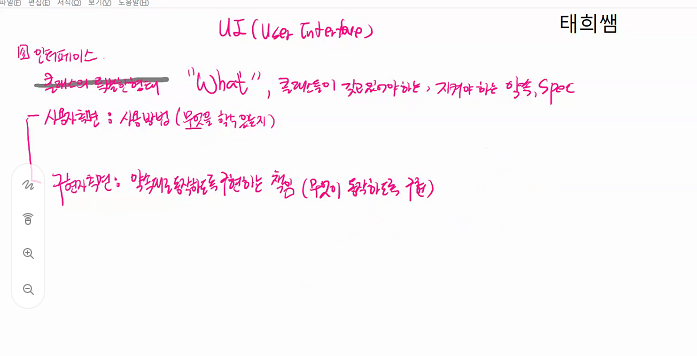 파일(F) 편집(E) 서식(O) 보기(V) 도움말(H)
UI (User Interface)
태희쌤
인터페이스
클래스의 특별한 형태 "What", 클래스들이 갖고있어야하는, 지켜야 하는 약속, Spec
사용자측면 : 사용방법 (무엇을 할수 있는지)
구현자측면 : 약속대로 동작하도록 구현하는 책임 (무엇이 동작하도록 구현)